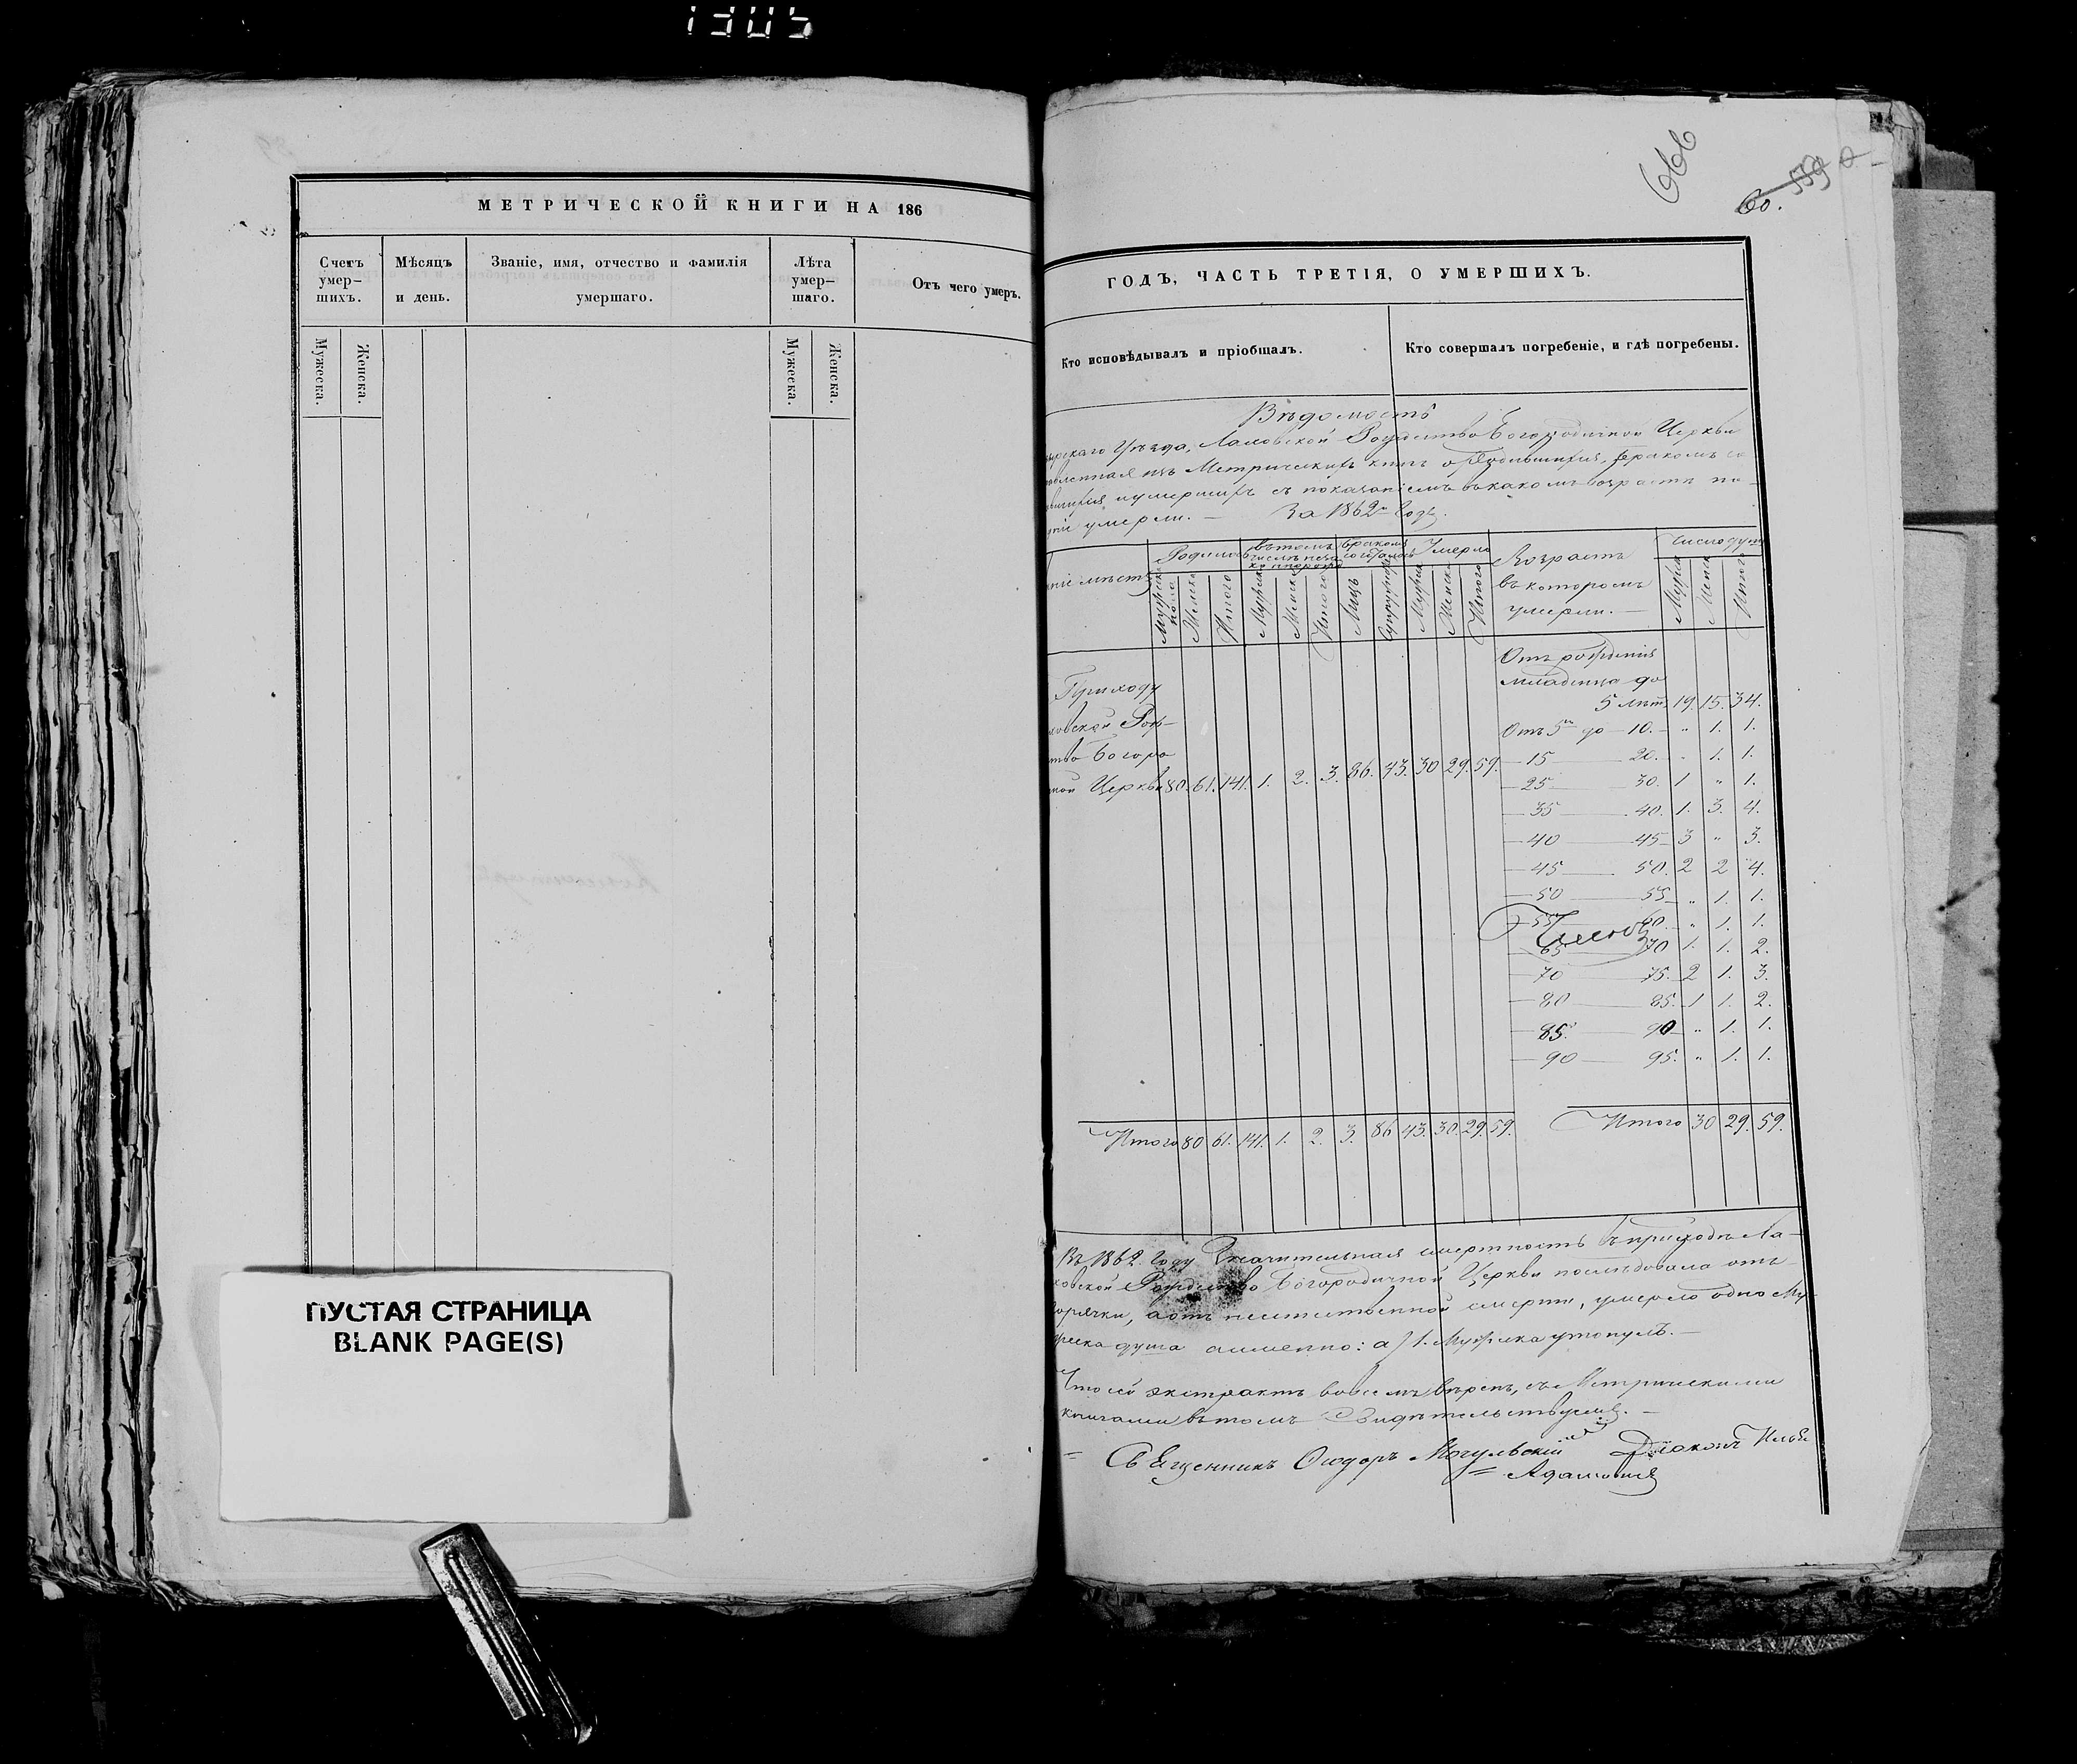 1305
МЕТРИЧЕСКОЙ КНИГИ НА 186
Счетъ умер-шихъ.
Мѣсяцъ и день.
Званіе, имя, отчество и фамилія умершаго.
Лѣта умер-шаго.
Отъ чего умеръ.
Мужеска.
Женска.
Мужеска.
Женска.
ПУСТАЯ СТРАНИЦА
BLANK PAGE(S)
666
60. 539
ГОДЪ, ЧАСТЬ ТРЕТІЯ, О УМЕРШИХЪ.
Кто исповѣдывалъ и пріобщалъ.
Кто совершалъ погребеніе, и гдѣ погребены.
Вѣдомость
Уѣзда, Лаховской Рождество Богородичной Церкви
изъ Метрическихъ книгъ о Родившихся, бракомъ со
умершихъ съ показаніемъ въ какомъ возрастѣ
умерли. — За 1862й Годъ.
Родилось
въ томъ числѣ
бракомъ
Умерло
Возрастъ въ которомъ умерли. —
Число душъ
Мужска пола
Женска
Итого
Мужска
Женска
Итого
Лицъ
Мужска
Женска
Итого
Мужска
Женска
Итого
Отъ рожденія
младенца до
5 лѣтъ 19. 15. 34.
Отъ 5ти до 10. " 1. 1.
15 20. " 1. 1.
25 30. 1 " 1.
35 40. 1. 3. 4.
40 45 3 " 3.
45 50. 2 2 4.
50 55 " 1. 1.
55 60. " 1. 1.
65 70 1. 1. 2.
70 75. 2 1. 3.
80 85. 1 1. 2.
85. 90 " 1. 1.
90 95. " 1. 1.
Приходу
Рож-
Богоро
Церкви 80. 61. 141. 1. 2. 3. 86. 43. 30 29. 59.
Итого 80 61. 141. 1. 2. 3. 86 43. 30. 29. 59.
Итого 30 29. 59.
Въ 1862. Году Значительная смертность въ приходѣ Ла-
ховской Рождество Богородичной Церкви послѣдовала отъ
горячки, а отъ неестественной смерти, умерло одно Му-
жеска душа а именно: а) 1. Мужска утонулъ. —
Что сей экстрактъ во всемъ вѣренъ, съ Метрическими
книгами въ томъ Свидѣтельствуемъ. —
Священникъ Ѳеодоръ Могульскій
Діаконъ Илья
Адамовичъ